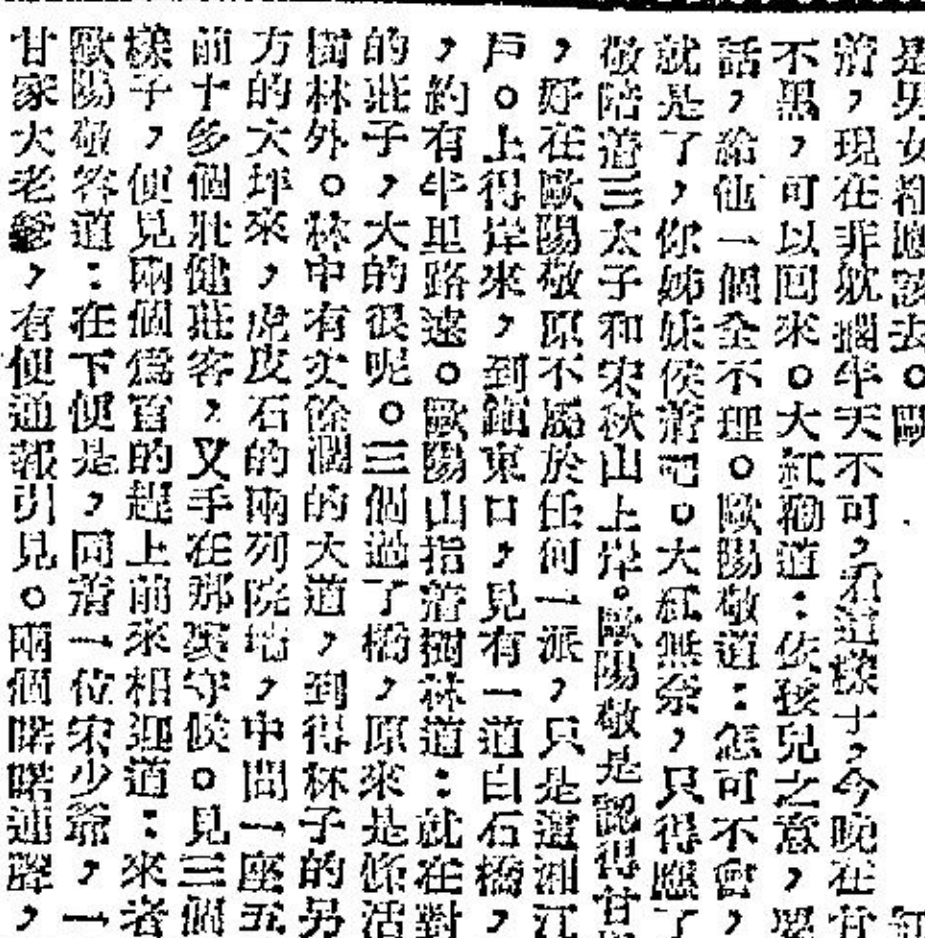 是男女都應該去。歐
着，現在非就擱半天不可，看這樣子，今晚在甘
不黑，可以回來。大紅勸道：依孩兒之意，要
話，給他一個全不理。歐陽敬道：怎可不會，
就是了，你姊妹侯着吧。大紅無奈，只得應了
敬陪着三太子和宋秋山上岸。歐陽敬是認得甘
，好在歐陽敬原不屬於任何一派，只是這湘江
戶。上得岸來，到鎮東口，見有一道白石橋，
，約有半里路遠。歐陽山指着樹林道：就在對
的莊子，大的很呢。三個過了橋，原來是條活
樹林外。林中有丈餘濶的大道，到得林子的另
方的大坪來，虎皮石的兩列院墻，中間一座五
前十多個壯健莊客，叉手在那裏守候。見三個
樣子，便見兩個爲首的趕上前來相迎道：來者
歐陽敬答道：在下便是，同着一位宋少爺，一
甘家大老爺，有便通報引見。兩個喏喏連聲，